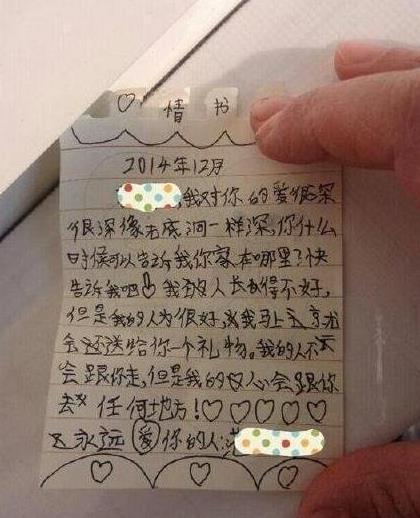 ♡ 情 书
2014年12月
,我对你的爱很深
很深像无底洞一样深,你什么
时候可以告诉我你家在哪里?快
告诉我吧!我女人长的得不好,
但是我的人为很好,我马上去京
会还送给你一个礼物。我的人不
会跟你走,但是我的心会跟你
去 任何地方!♡♡♡♡♡
永远 爱 你的人: